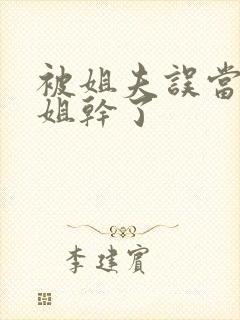 被姐夫誤當
姐幹了
李建賓